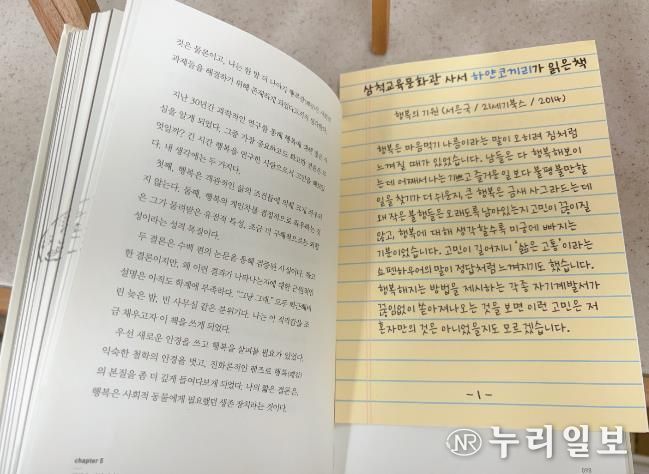 것은 물론이고, 나는 한 발 더 나아가
과제들을 해결하기 위해 존재하게 되었다고까지 생각한다.
지난 30년간 과학적인 연구를 통해 행복에 대한 많은 사
실을 알게 되었다. 그중 가장 중요하다고 꼽고 싶은 것은 무
엇일까? 긴 시간 행복을 연구한 사람으로서 고민을 해보았
다. 내 생각에는 두 가지다.
첫째, 행복은 객관적인 삶의 조건들에 의해 크게 좌우되
지 않는다. 둘째, 행복의 개인차를 결정적으로 좌우하는 것
은 그가 물려받은 유전적 특성, 조금 더 구체적으로는 외향
성이라는 성격 특질이다.
두 결론은 수백 편의 논문을 통해 검증된 사실이다. 확고
한 결론이지만, 왜 이런 결과가 나타나는지에 대한 근원적인
설명은 아직도 학계에 부족하다. "그냥 그래." 모두 퇴근해버
린 늦은 밤, 빈 사무실 같은 분위기다. 나는 이 적적함을 조
금 채우고자 이 책을 쓰게 되었다.
우선 새로운 안경을 쓰고 행복을 살펴볼 필요가 있었다.
익숙한 철학의 안경을 벗고, 진화론적인 렌즈로 행복(쾌감)
의 본질을 좀 더 깊게 들여다보게 되었다. 나의 짧은 결론은,
행복은 사회적 동물에게 필요했던 생존 장치라는 것이다.
chapter 5
삼척교육문화관 사서 하얀코끼리가 읽은책
행복의 기원 (서은국 / 21세기북스 / 2014)
행복은 마음먹기 나름이라는 말이 오히려 짐처럼
느껴질 때가 있었습니다. 남들은 다 행복해보이
는데 어째서 나는 기쁘고 즐거운 일보다 불평불만할
일을 찾기가 더 쉬운지, 큰 행복은 금새 사그라드는데
왜 작은 불행들은 오래도록 남아있는지 고민이 끊이질
않고, 행복에 대해 생각할수록 미궁에 빠지는
기분이었습니다. 고민이 길어지니 '삶은 고통'이라는
쇼펜하우어의 말이 정답처럼 느껴지기도 했습니다.
행복해지는 방법을 제시하는 각종 자기계발서가
끊임없이 쏟아져나오는 것을 보면 이런 고민은 저
혼자만의 것은 아니었을지도 모르겠습니다.
-1-
NR 누리일보